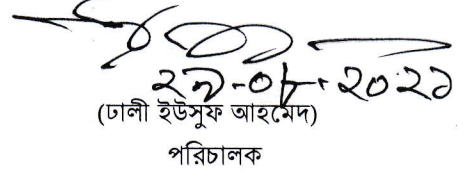 ২৯-০৮-২০২১
(ঢালী ইউসুফ আহমেদ)
পরিচালক